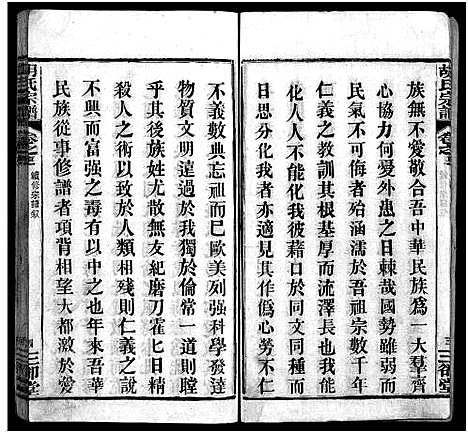 族無不愛敬合吾中華民族為一大羣齊
心協力何憂外患之日棘哉國勢雖弱而
民氣不可侮者殆涵濡於吾祖宗數千年
仁義之教訓其根基厚而流澤長也我能
化人人不能化我彼藉口於同文同種而
日思分化我者亦適見其作偽心勞而已
不義數典忘祖而已歐美列强科學發達
物質文明遠過於我獨於倫常一道則瞠
乎其後族姓尤散無友紀磨刀霍七日精
殺人之術以致於人類相殘則仁義之說
不明而强權之毒有以中之也年來吾華
民族從事修譜者項背相望大都激於愛
胡氏宗譜
卷之三
續修宗譜叙
四
胡氏宗譜
三